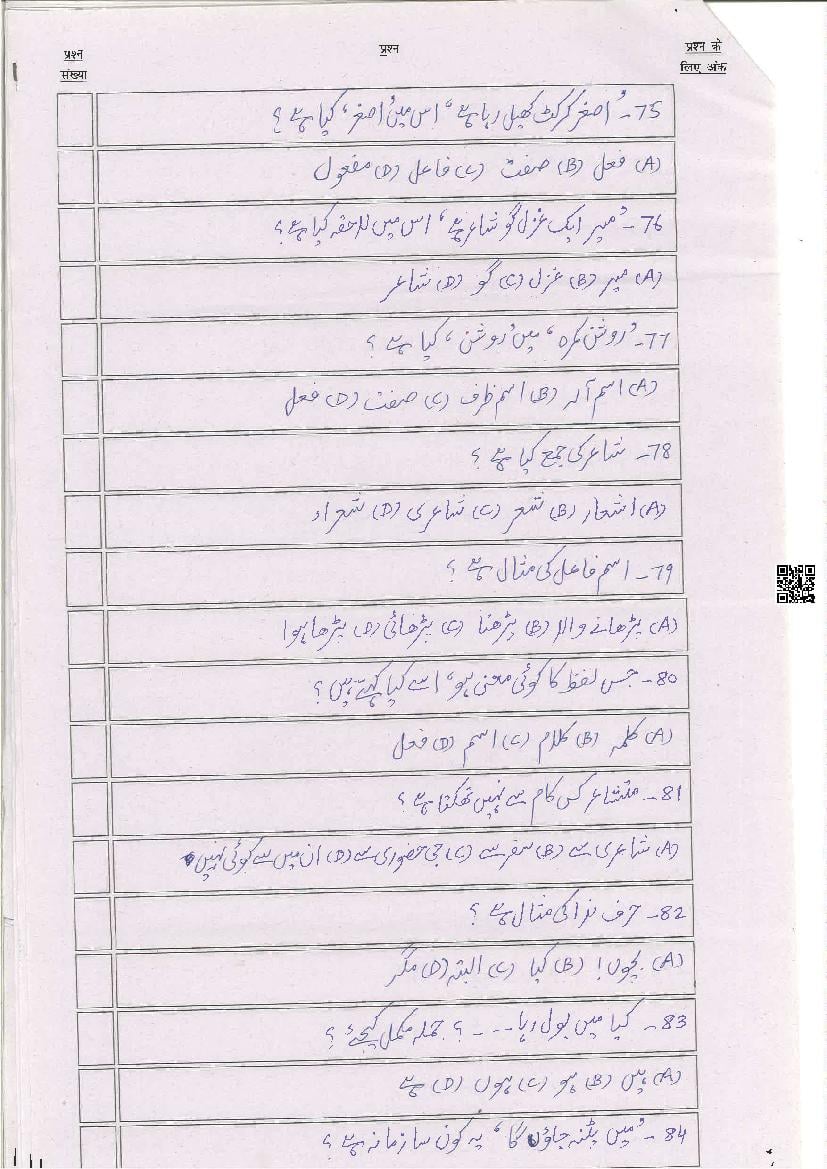 प्रश्न संख्या
प्रश्न
प्रश्न के लिए अंक
75- 'اصغر کرکٹ کھیل رہا ہے' اس میں 'اصغر' کیا ہے؟
(A) فعل (B) صفت (C) فاعل (D) مفعول
76- 'میر ایک غزل گو شاعر ہے' اس میں لاحقہ کیا ہے؟
(A) میر (B) غزل (C) گو (D) شاعر
77- 'روشن کمرہ' میں 'روشن' کیا ہے؟
(A) اسم آلہ (B) اسم ظرف (C) صفت (D) فعل
78- شاعر کی جمع کیا ہے؟
(A) اشعار (B) شعر (C) شاعری (D) شعراء
79- اسم فاعل کی مثال ہے؟
(A) پڑھانے والا (B) پڑھنا (C) پڑھائی (D) پڑھا ہوا
80- جس لفظ کا کوئی معنی ہو' اسے کیا کہتے ہیں؟
(A) کلمہ (B) کلام (C) اسم (D) فعل
81- متشاعر کس کام سے نہیں تھکتا ہے؟
(A) شاعری سے (B) سفر سے (C) جی حضوری سے (D) ان میں سے کوئی نہیں
82- حرف ندا کی مثال ہے؟
(A) بچوں! (B) کیا (C) البتہ (D) مگر
83- کیا میں بول رہا ---؟ جملہ مکمل کیجئے؟
(A) ہیں (B) ہو (C) ہوں (D) ہے
84- 'میں پٹنہ جاؤں گا' یہ کون سا زمانہ ہے؟